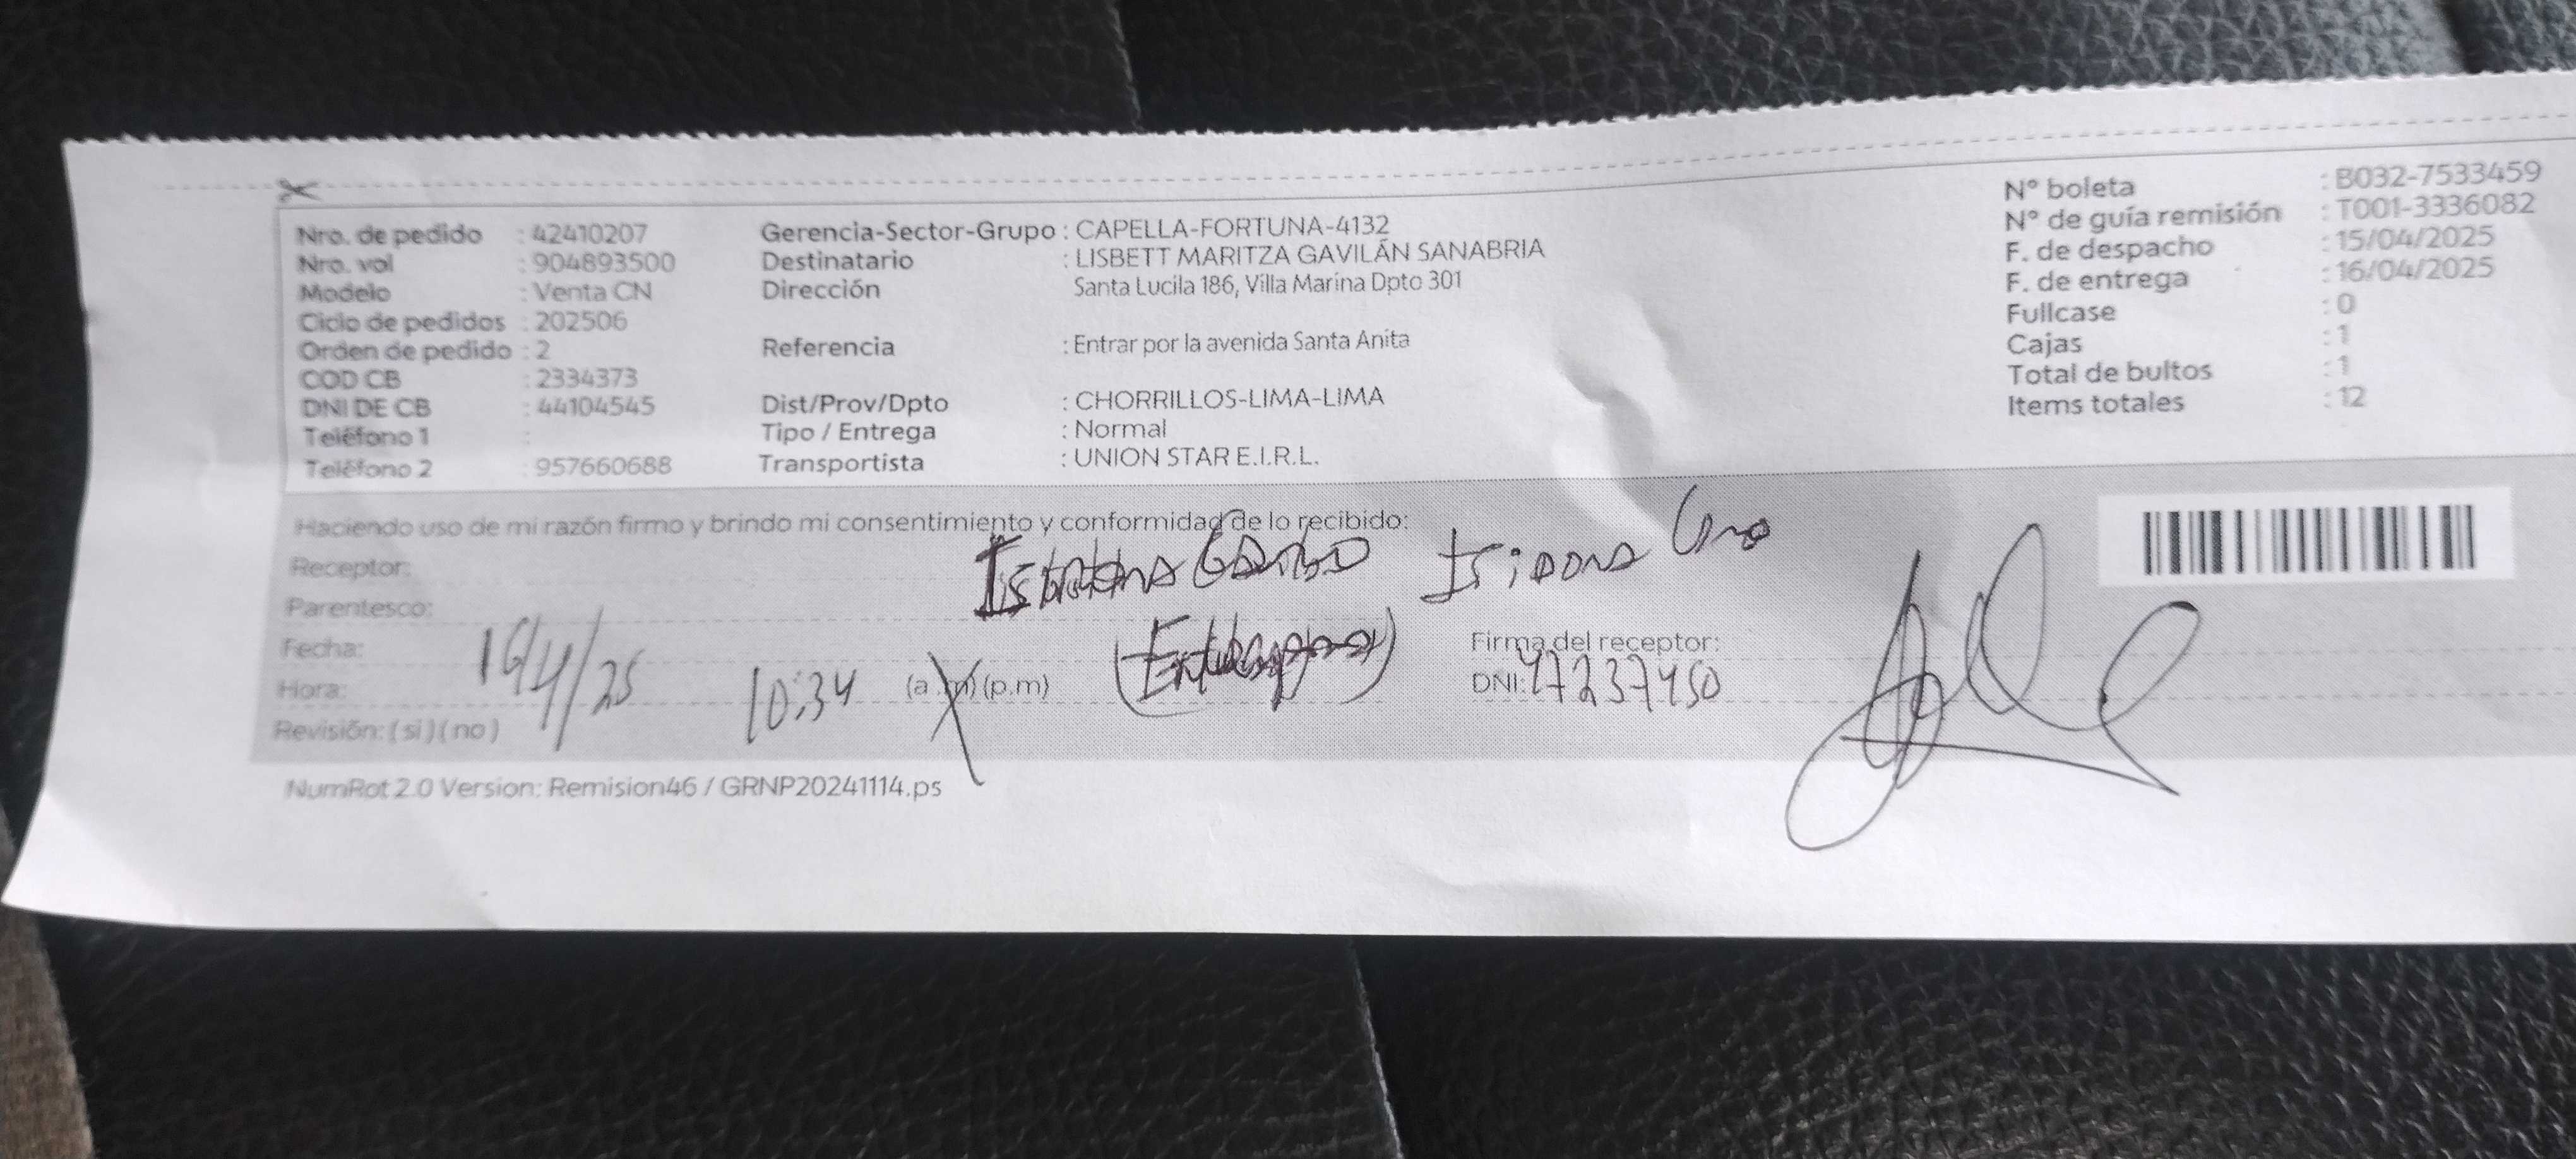 Nro. de pedido : 42410207
Nro. vol : 904893500
Modelo : Venta CN
Ciclo de pedidos : 202506
Orden de pedido : 2
COD CB : 2334373
DNI DE CB : 44104545
Teléfono 1 :
Teléfono 2 : 957660688
Gerencia-Sector-Grupo : CAPELLA-FORTUNA-4132
Destinatario : LISBETT MARITZA GAVILÁN SANABRIA
Dirección Santa Lucila 186, Villa Marina Dpto 301
Referencia : Entrar por la avenida Santa Anita
Dist/Prov/Dpto : CHORRILLOS-LIMA-LIMA
Tipo / Entrega : Normal
Transportista : UNION STAR E.I.R.L.
N° boleta : B032-7533459
N° de guía remisión : T001-3336082
F. de despacho : 15/04/2025
F. de entrega : 16/04/2025
Fullcase : 0
Cajas : 1
Total de bultos : 1
Items totales : 12
Haciendo uso de mi razón firmo y brindo mi consentimiento y conformidad de lo recibido:
Receptor:
Parentesco:
Fecha: 16/4/25
Hora: 10:34 (a.m) (p.m)
Revisión: ( si ) ( no )
Firma del receptor:
DNI: 47237450
NumRot 2.0 Version: Remision46 / GRNP20241114.ps